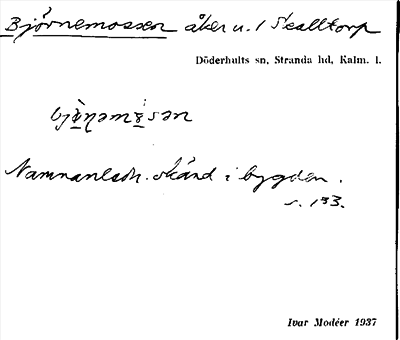 Björnemossen åker u. 1 Skalltorp
Döderhults sn, Stranda hd, Kalm. l.
Namnanledn. okänd i bygden.
s. 133.
Ivar Modéer 1937